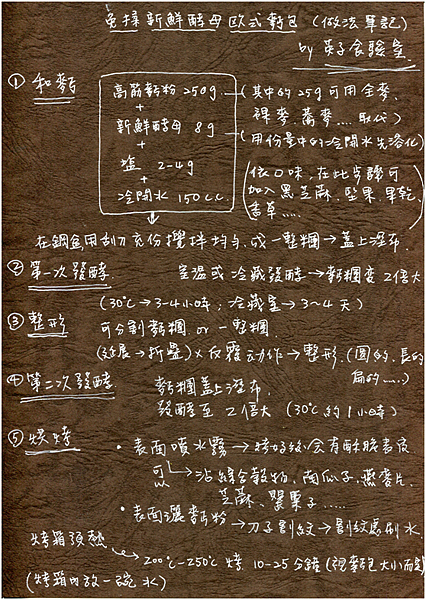 免揉新鮮酵母歐式麵包 (做法筆記)
by 菓子食驗室
① 和麵
高筋麵粉 250g
+
新鮮酵母 8g
+
塩 2-4g
+
冷開水 150 c.c.
(其中的25g可用全麥、
裸麥、蕎麥....取代)
(用份量中的冷開水先溶化)
(依口味,在此步驟可
加入黑芝麻、堅果、果乾、
香草.....)
在鋼盆用刮刀充份攪拌均勻,成一整糰→蓋上溼布.
② 第一次發酵. 室溫或冷藏發酵→麵糰變2倍大
(30℃→3-4小時;冷藏室→3~4天)
③ 整形 可分割麵糰 or 一整糰
(延展→折疊)×反覆動作→整形.(圓的、長的
扁的.....)
④ 第二次發酵. 麵糰蓋上溼布,
發酵至2倍大 (30℃約1小時)
⑤ 烘烤 • 表面噴水霧→烤好後会有酥脆表皮
可以→沾綜合穀物、南瓜子、燕麥片、
芝麻、堅果子......
• 表面灑麵粉→刀子割紋→割紋處刷水.
烤箱預熱
200℃-250℃ 烤 10-25分鐘 (視麵包大小而定)
(烤箱內放一碗水)